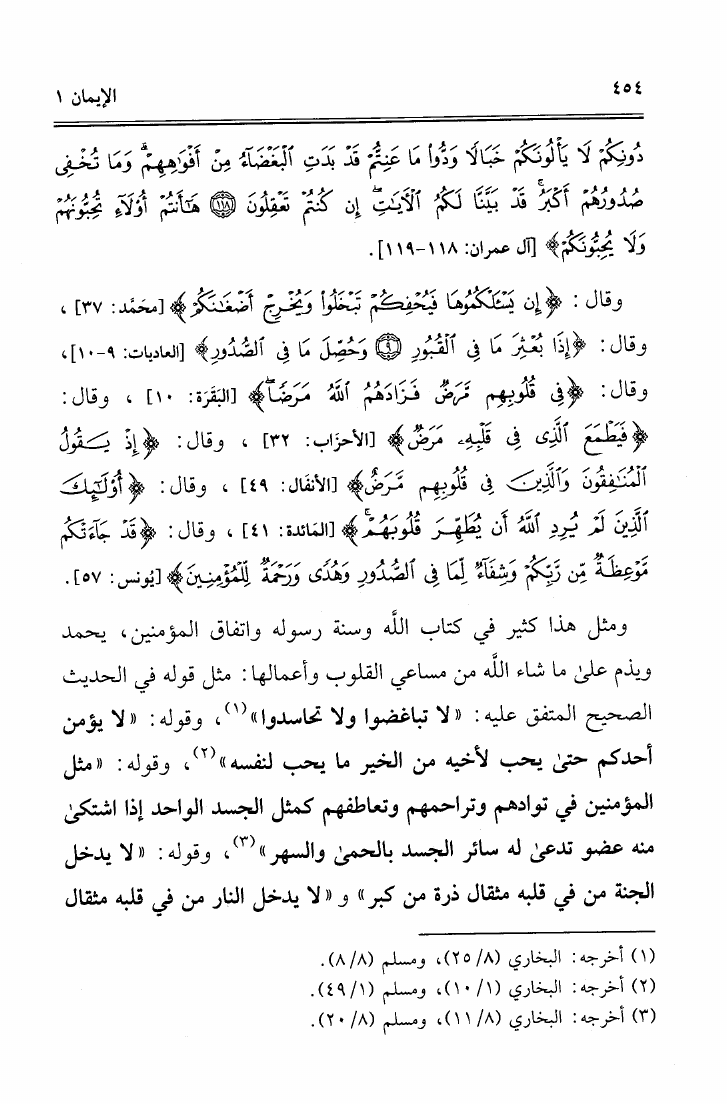 ٤٥٤
الإيمان ١
دُونِكُمْ لَا يَأْلُونَكُمْ خَبَالًا وَدُّوا۟ مَا عَنِتُّمْ قَدْ بَدَتِ ٱلْبَغْضَآءُ مِنْ أَفْوَٰهِهِمْ وَمَا تُخْفِى
صُدُورُهُمْ أَكْبَرُ ۚ قَدْ بَيَّنَّا لَكُمُ ٱلْـَٔايَـٰتِ ۖ إِن كُنتُمْ تَعْقِلُونَ ﴿١١٨﴾ هَـٰٓأَنتُمْ أُو۟لَآءِ تُحِبُّونَهُمْ
وَلَا يُحِبُّونَكُمْ﴾ [آل عمران: ١١٨-١١٩].
وقال : ﴿إِن يَسْـَٔلْكُمُوهَا فَيُحْفِكُمْ تَبْخَلُوا۟ وَيُخْرِجْ أَضْغَـٰنَكُمْ﴾ [محمَّد: ٣٧] ،
وقال: ﴿إِذَا بُعْثِرَ مَا فِى ٱلْقُبُورِ ﴿٩﴾ وَحُصِّلَ مَا فِى ٱلصُّدُورِ﴾ [العاديات: ٩-١٠]،
وقال: ﴿فِى قُلُوبِهِم مَّرَضٌ فَزَادَهُمُ ٱللَّهُ مَرَضًا ۖ﴾ [البَقَرَة: ١٠] ، وقال:
﴿فَيَطْمَعَ ٱلَّذِى فِى قَلْبِهِۦ مَرَضٌ﴾ [الأحزَاب: ٣٢] ، وقال: ﴿إِذْ يَقُولُ
ٱلْمُنَـٰفِقُونَ وَٱلَّذِينَ فِى قُلُوبِهِم مَّرَضٌ﴾ [الأنفَال: ٤٩] ، وقال: ﴿أُو۟لَـٰٓئِكَ
ٱلَّذِينَ لَمْ يُرِدِ ٱللَّهُ أَن يُطَهِّرَ قُلُوبَهُمْ ۚ﴾ [المَائدة: ٤١] ، وقال: ﴿قَدْ جَآءَتْكُم
مَّوْعِظَةٌ مِّن رَّبِّكُمْ وَشِفَآءٌ لِّمَا فِى ٱلصُّدُورِ وَهُدًى وَرَحْمَةٌ لِّلْمُؤْمِنِينَ﴾ [يُونس: ٥٧].
ومثل هذا كثير في كتاب اللَّه وسنة رسوله واتفاق المؤمنين، يحمد
ويذم علىٰ ما شاء اللَّه من مساعي القلوب وأعمالها: مثل قوله في الحديث
الصحيح المتفق عليه: «لا تباغضوا ولا تحاسدوا»(١)، وقوله: «لا يؤمن
أحدكم حتىٰ يحب لأخيه من الخير ما يحب لنفسه»(٢)، وقوله: «مثل
المؤمنين في توادهم وتراحمهم وتعاطفهم كمثل الجسد الواحد إذا اشتكىٰ
منه عضو تدعىٰ له سائر الجسد بالحمىٰ والسهر»(٣)، وقوله: «لا يدخل
الجنة من في قلبه مثقال ذرة من كبر» و«لا يدخل النار من في قلبه مثقال
(١) أخرجه: البخاري (٢٥/٨)، ومسلم (٨/٨).
(٢) أخرجه: البخاري (١٠/١)، ومسلم (٤٩/١).
(٣) أخرجه: البخاري (١١/٨)، ومسلم (٢٠/٨).